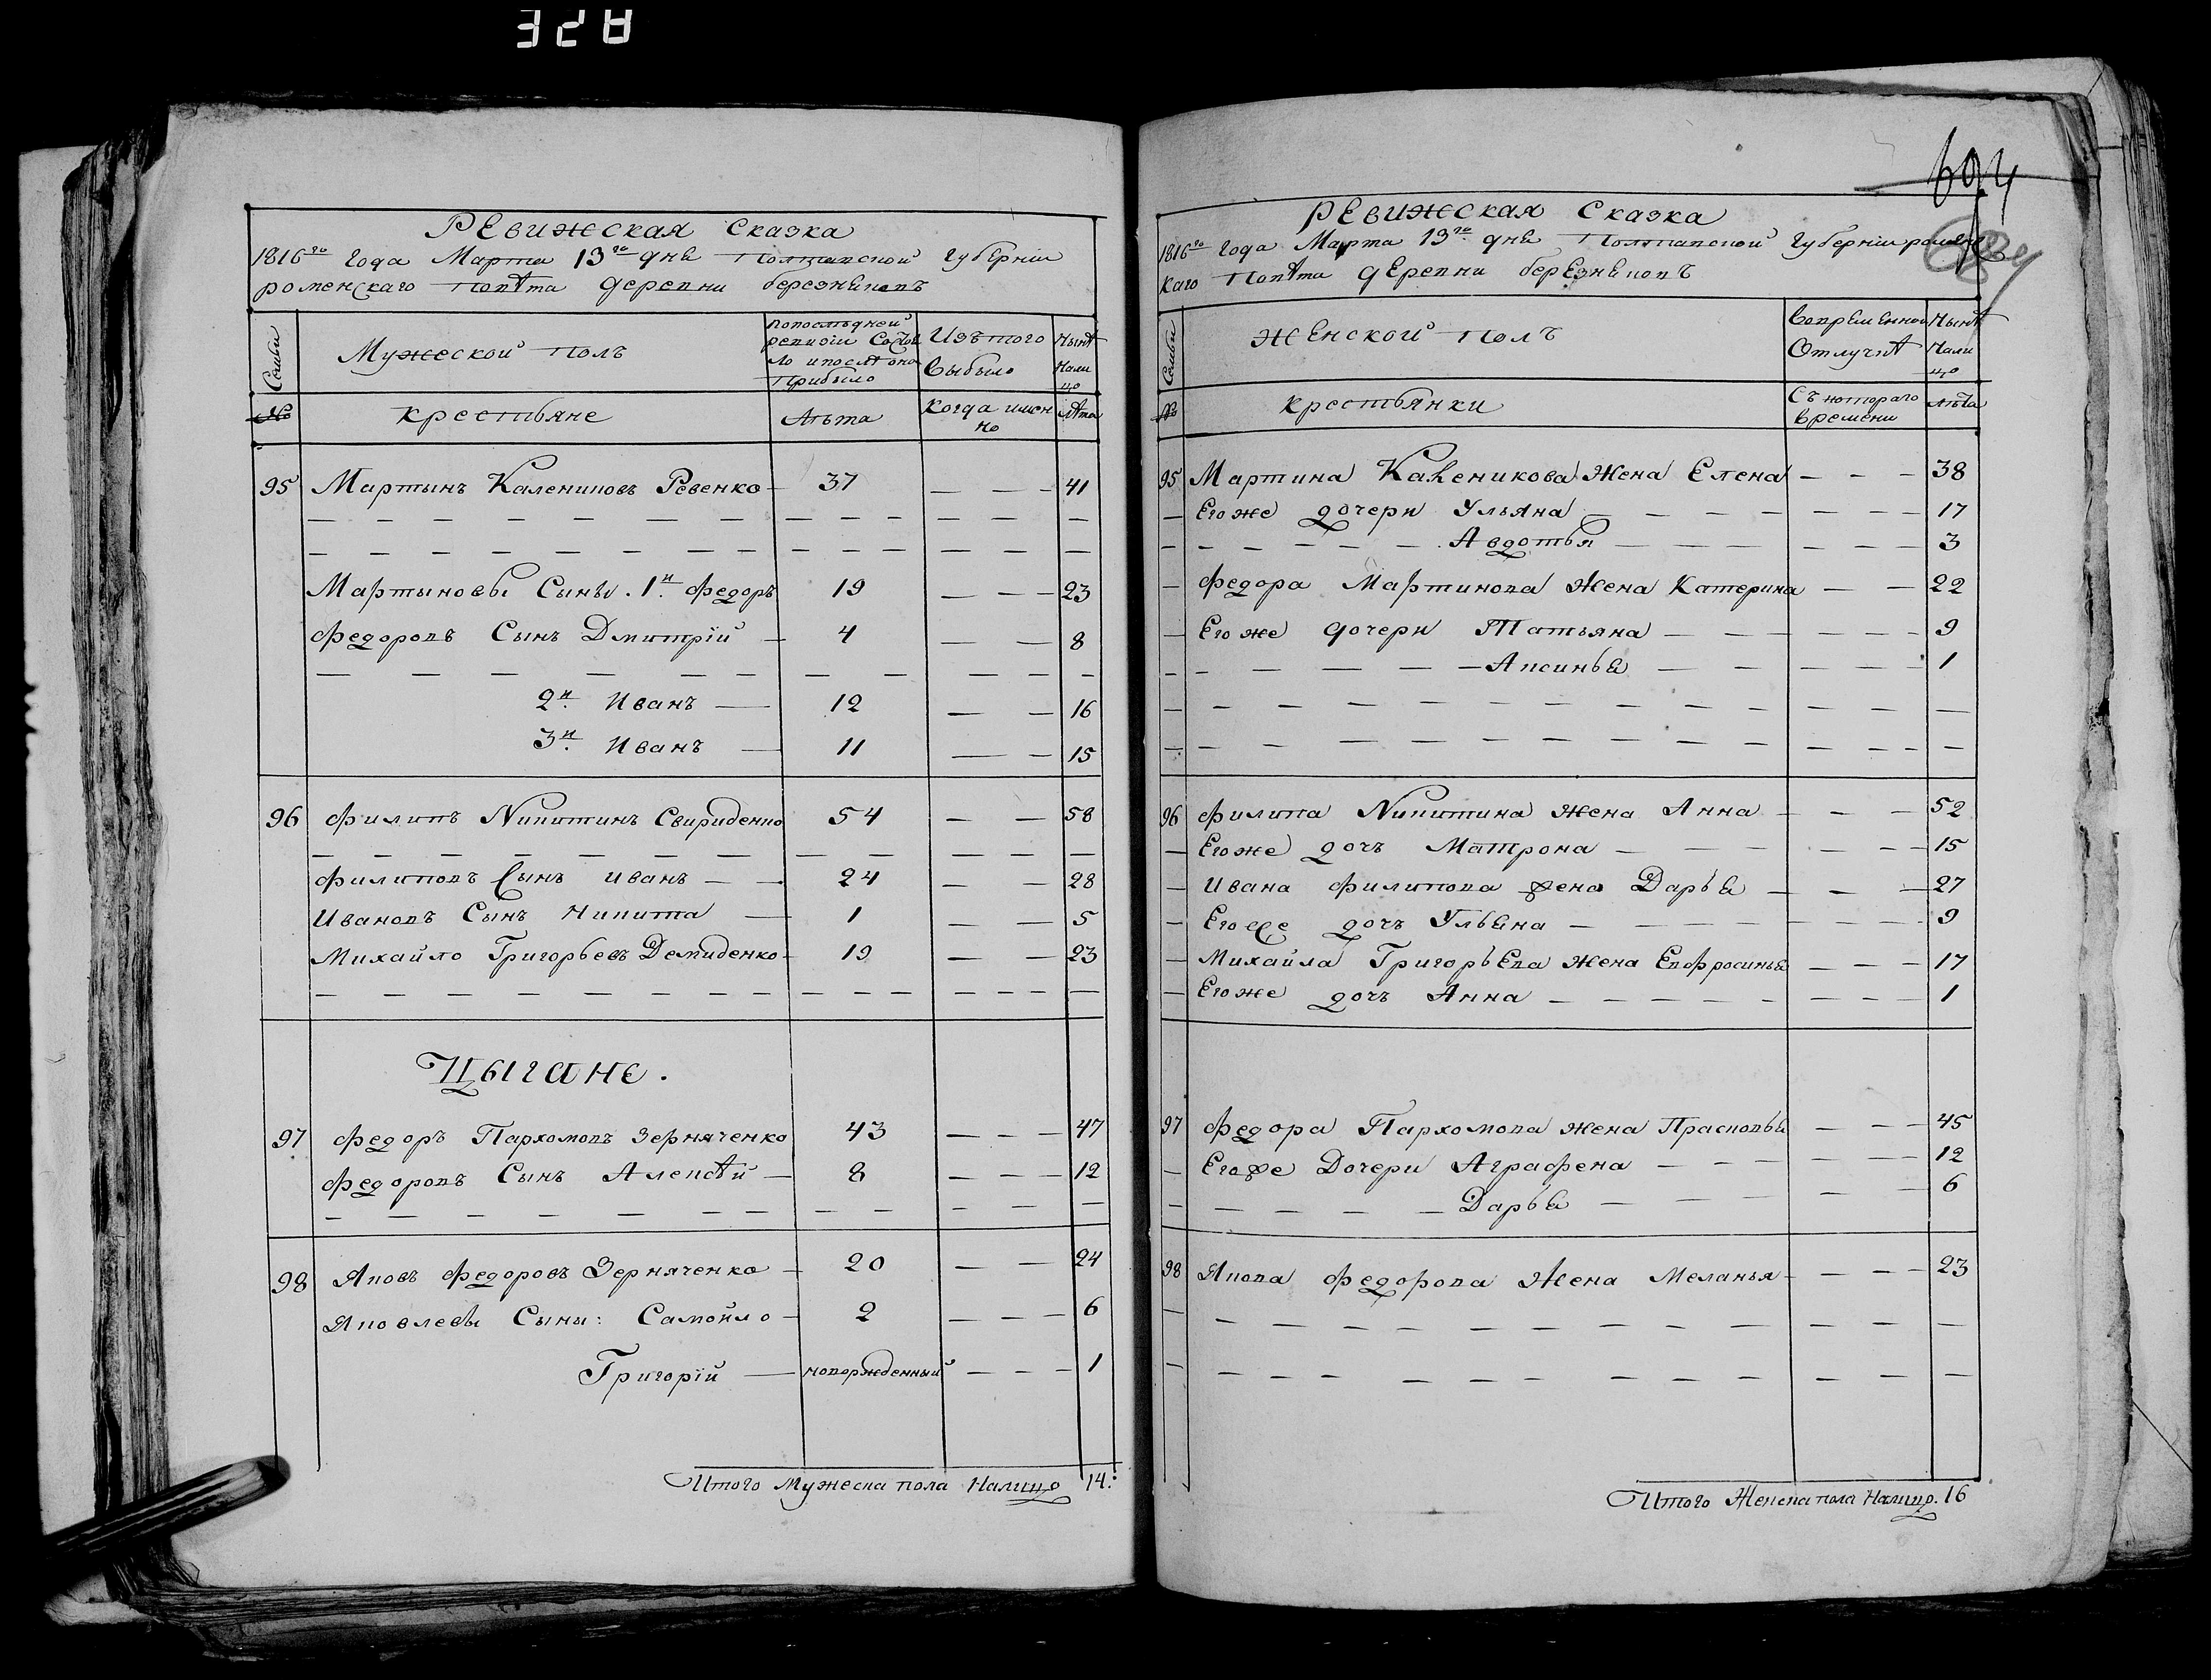 328
Ревижская Сказка
1816го Года Марта 13го дня Полтавской Губернiи
роменскаго Повѣта деревни березняковъ
Семьи
Мужеской Полъ
Попослѣдней
ревизiи Состоя
ло ипослѣ оной
Прибыло
Изътого
Выбыло
Нынѣ
Нали
цо
№
крестьяне
Лѣта
Когда имян
но
Лѣта
95 Мартынъ Калениковъ Ревенко 37 — — — 41
Мартыновы Сыны. 1й. Федоръ 19 — — — 23
Федоровъ Сынъ Дмитрiй — 4 — — 8
2й. Иванъ — 12 — — 16
3й. Иванъ — 11 — — 15
96 Филипъ Никитинъ Свириденко 54 — — 58
Филиповъ Сынъ Иванъ — — 24 — — 28
Ивановъ Сынъ Никита — 1 — — 5
Михайло Григорьевъ Демиденко 19 — — 23
Цыгане.
97 Федоръ Пархомовъ Зерняченко 43 — — — 47
Федоровъ Сынъ Алексѣй — 8 — — — 12
98 Яковъ Федоровъ Зерняченко — 20 — — 24
Яковлевы Сыны: Самойло — 2 — — — 6
Григорiй — новоржденный — — — 1
Итого Мужеска пола Налицо 14:
604
Ревижская Сказка
1816го Года Марта 13го дня Полтавской Губернiи роменс
каго Повѣта деревни березняковъ
Семьи
Женской Полъ
Вовременной
Отлучкѣ
Нынѣ
Нали
цо
№
крестьянки
Съ котораго
времени
Лѣта
95 Мартина Каленикова Жена Елена — — — 38
Егоже дочери Ульяна — — — 17
Авдотья — — — 3
Федора Мартинова Жена Катерина — — 22
Егоже дочери Татьяна — — — 9
Аксинья — — — 1
96 Филипа Никитина Жена Анна — — — 52
Егоже дочъ Матрона — — — 15
Ивана Филипова жена Дарья — — — 27
Егоже дочъ Ульяна — — — 9
Михайла Григорьева Жена Евфросинья — — — 17
Егоже дочъ Анна — — — 1
97 Федора Пархомова Жена Прасковья — — — 45
Егоже Дочери Аграфена — — — 12
Дарья — — — 6
98 Якова Федорова Жена Меланья — — — 23
Итого Женска пола Налицо. 16